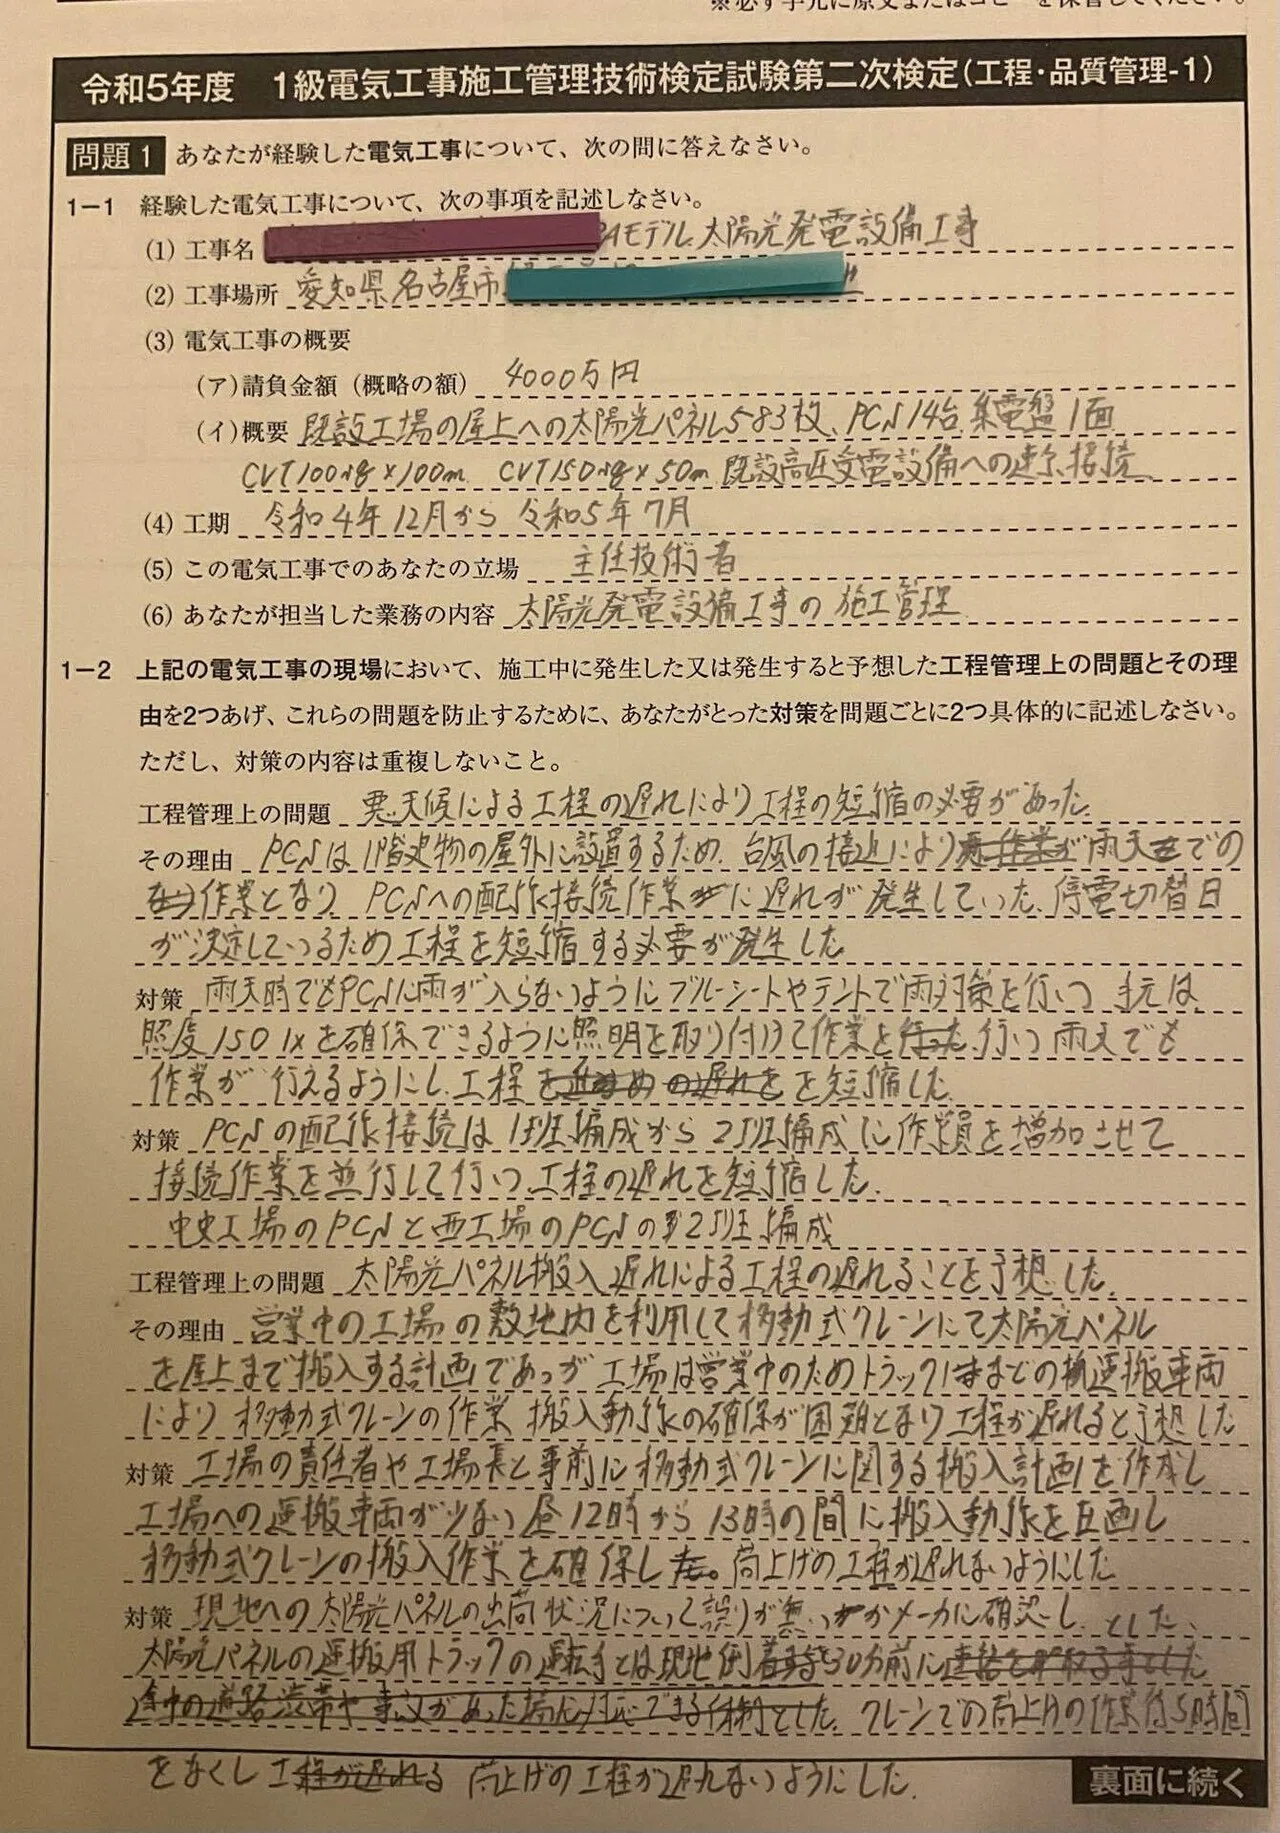 ※必ず手元に原文またはコピーを保管してください。
令和5年度 1級電気工事施工管理技術検定試験第二次検定(工程・品質管理-1)
問題1 あなたが経験した電気工事について、次の問に答えなさい。
1-1 経験した電気工事について、次の事項を記述しなさい。
(1) 工事名 モデル 太陽光発電設備工事
(2) 工事場所 愛知県名古屋市
(3) 電気工事の概要
(ア)請負金額(概略の額) 4000万円
(イ)概要 既設工場の屋上への太陽光パネル583枚、PCS14台 集電盤1面
CVT100sq×100m CVT150sq×50m 既設高圧受電設備への連系接続
(4) 工期 令和4年12月から 令和5年7月
(5) この電気工事でのあなたの立場 主任技術者
(6) あなたが担当した業務の内容 太陽光発電設備工事の施工管理
1-2 上記の電気工事の現場において、施工中に発生した又は発生すると予想した工程管理上の問題とその理
由を2つあげ、これらの問題を防止するために、あなたがとった対策を問題ごとに2つ具体的に記述しなさい。
ただし、対策の内容は重複しないこと。
工程管理上の問題 悪天候による工程の遅れにより工程の短縮の必要があった.
その理由 PCSは1階建物の屋外に設置するため、台風の接近により 雨天での
作業となり、PCSへの配線接続作業に遅れが発生していた.停電切替日
が決定しているため工程を短縮する必要が発生した
対策 雨天時でもPCSに雨が入らないようにブルーシートやテントで雨対策を行い 手元は
照度150lxを確保できるように照明を取り付けて作業を行った 行い 雨天でも
作業が行えるようにし工程 の遅れを を短縮した
対策 PCSの配線接続は1班編成から2班編成に作業員を増加させて
接続作業を並行して行い、工程の遅れを短縮した.
中央工場のPCSと西工場のPCSの 2班編成
工程管理上の問題 太陽光パネル搬入遅れによる工程の遅れることを予想した.
その理由 営業中の工場の敷地内を利用して移動式クレーンにて太陽光パネル
を屋上まで搬入する計画であっが 工場は営業中のためトラックなどの 運搬車両
により 移動式クレーンの作業 搬入動線の確保が困難となり工程が遅れると予想した
対策 工場の責任者や工場長と事前に移動式クレーンに関する搬入計画を作成し
工場への運搬車両が少ない昼12時から13時の間に搬入動線を 画し
移動式クレーンの搬入作業を確保した。荷上げの工程が遅れないようにした
対策 現地への太陽光パネルの出荷状況について誤りが無いかメーカに確認し とした、
太陽光パネルの運搬用トラックの運転手とは現地到着 30分前に連絡を取る事とした
途中の道路渋滞や事故があった場合対応できる体制とした. クレーンでの荷上げの作業待ち時間
をなくし工程が遅れる 荷上げの工程が遅れないようにした.
裏面に続く